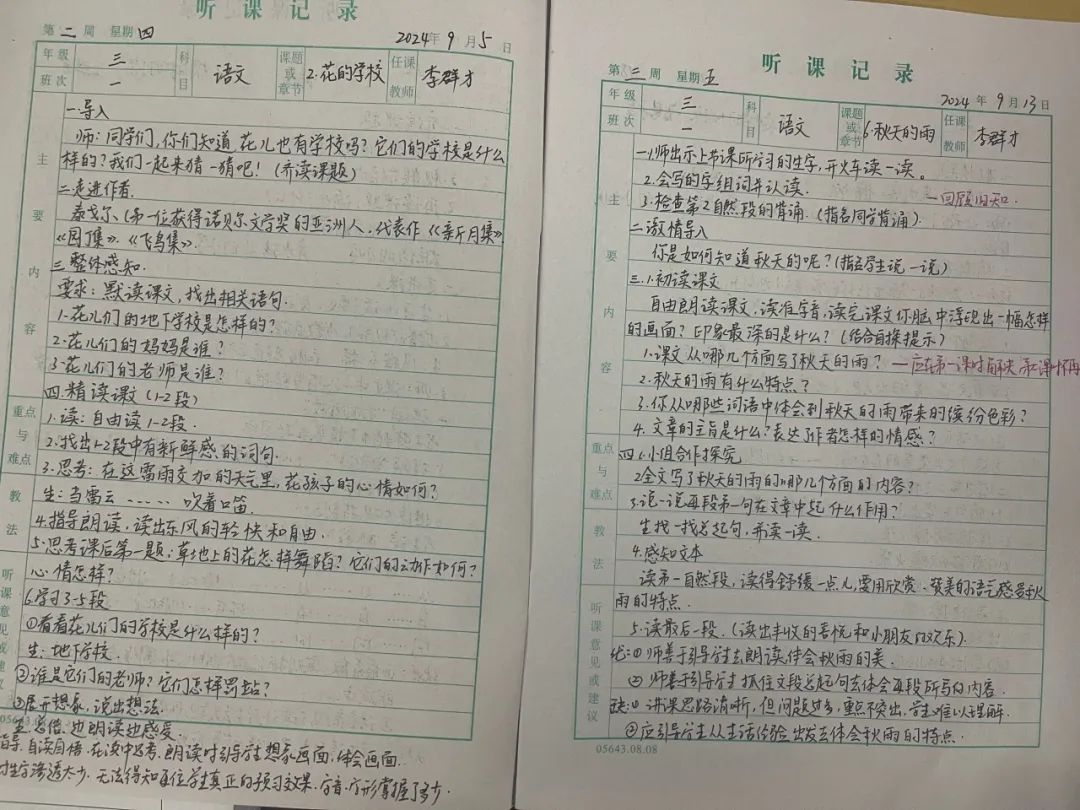 听课记录
第二周 星期四 2024年9月5日
年级 三 科目 语文 课题或章节 2.花的学校 任课教师 李群才
班次 一
主要内容
重点与难点
教法
听课意见或建议
一.导入
师:同学们,你们知道花儿也有学校吗?它们的学校是什么
样的?我们一起来猜一猜吧!(齐读课题)
二.走进作者.
泰戈尔、(第一位获得诺贝尔文学奖的亚洲人,代表作《新月集》
《园丁集》.《飞鸟集》.
三.整体感知.
要求:默读课文,找出相关语句.
1.花儿们的地下学校是怎样的?
2.花儿们的妈妈是谁?
3.花儿们的老师是谁?
四.精读课文(1-2段)
1.读:自由读1-2段.
2.找出1-2段中有新鲜感的词句.
3.思考:在这雷雨交加的天气里,花孩子的心情如何?
生:当雷云……吹着口笛.
4.指导朗读,读出东风的轻快和自由.
5.思考课后第一题:草地上的花怎样舞蹈?它们的动作如何?
心情怎样?
6.学习3-5段
①看看花儿们的学校是什么样的?
生:地下学校.
②谁是它们的老师?它们怎样罚站?
③展开想象,说出想法.
自读自悟,在读中思考,朗读时引导学生想象画面,体会画面.
渗透太少,无法得知每位学生真正的预习效果,字音.字形掌握了多少.
05643.0
听课记录
第三周 星期五 2024年9月13日
年级 三 科目 语文 课题或章节 6.秋天的雨 任课教师 李群才
班次 一
主要内容
重点与难点
教法
听课意见或建议
一.1.师出示上节课所学习的生字,开火车读一读。
2.会写的字组词并认读.
3.检查第2自然段的背诵.(指名同学背诵) —回顾旧知.
二.激情导入
你是如何知道秋天的呢?(指名学生说一说)
三.1.初读课文
自由朗读课文,读准字音,读完课文你脑中浮现出一幅怎样
的画面?印象最深的是什么?(结合自探提示)
1.课文从哪几个方面写了秋天的雨?—应在第一课时解决,第二课时不再
2.秋天的雨有什么特点?
3.你从哪些词语中体会到秋天的雨带来的缤纷色彩?
4.文章的主旨是什么?表达了作者怎样的情感?
四.1.小组合作探究
2.全文写了秋天的雨的哪几个方面的内容?
3.说一说每段第一句在文中起什么作用?
生找一找总起句,并读一读.
4.感知文本
读第一自然段,读得舒缓一点儿,要用欣赏、赞美的语气感受秋
雨的特点.
5.读最后一段.(读出丰收的喜悦和小朋友的欢乐)
优:①师善于引导学生去朗读体会秋雨的美.
②师善于引导学生抓住文段总起句去体会每段所写的内容.
缺:①讲课思路清晰,但问题过多,重点不突出,学生难以理解.
②应引导学生从生活经验出发去体会秋雨的特点.
05643.08.08